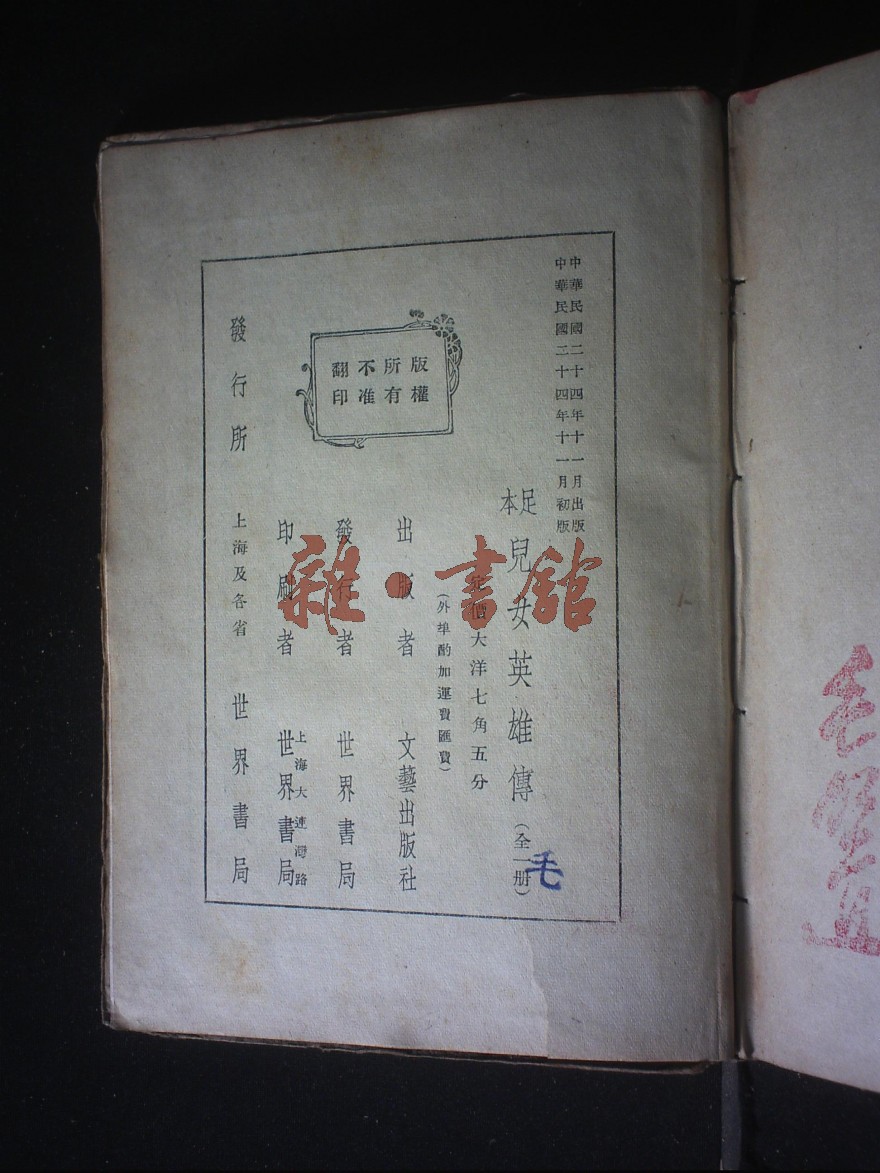 中華民國二十四年十一月出版
中華民國二十四年十一月初版
足本 兒女英雄傳（全一册）
毛
定價大洋七角五分
（外埠酌加運費匯費）
版權所有不准翻印
出版者 文藝出版社
發行者 世界書局
上海大連灣路
印刷者 世界書局
發行所 上海及各省 世界書局
雜·書館